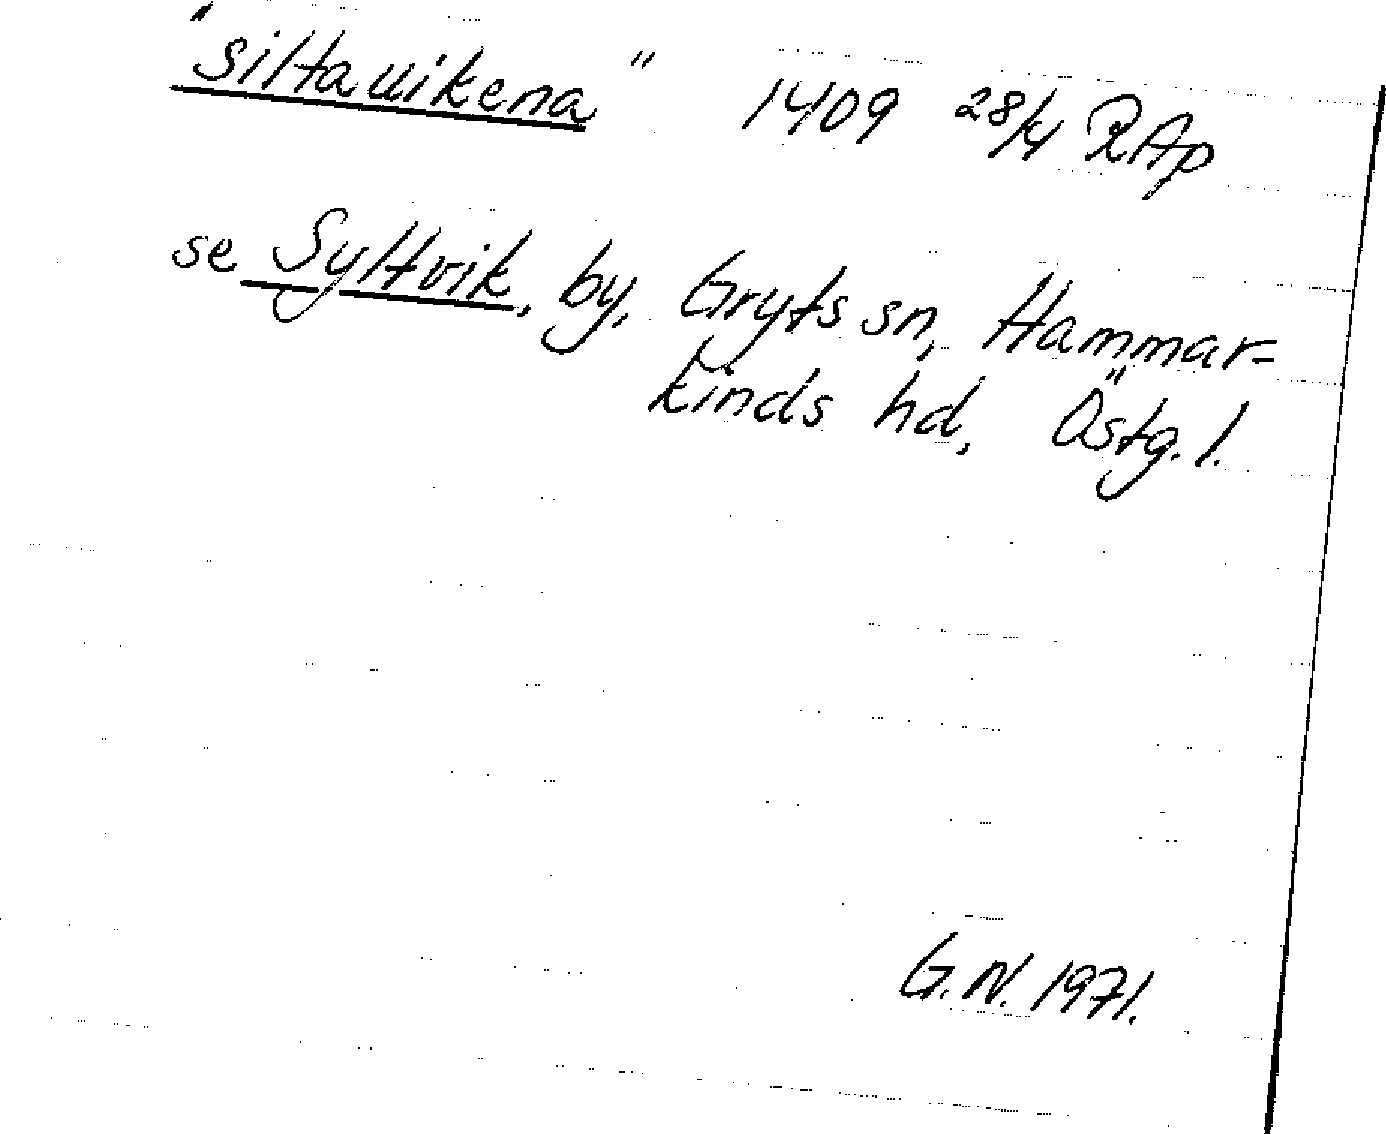 "siltauikena" 1409 28/4 RAp
se Syltvik, by, Gryts sn, Hammar-
kinds hd, Östg. l.
G.N. 1971.